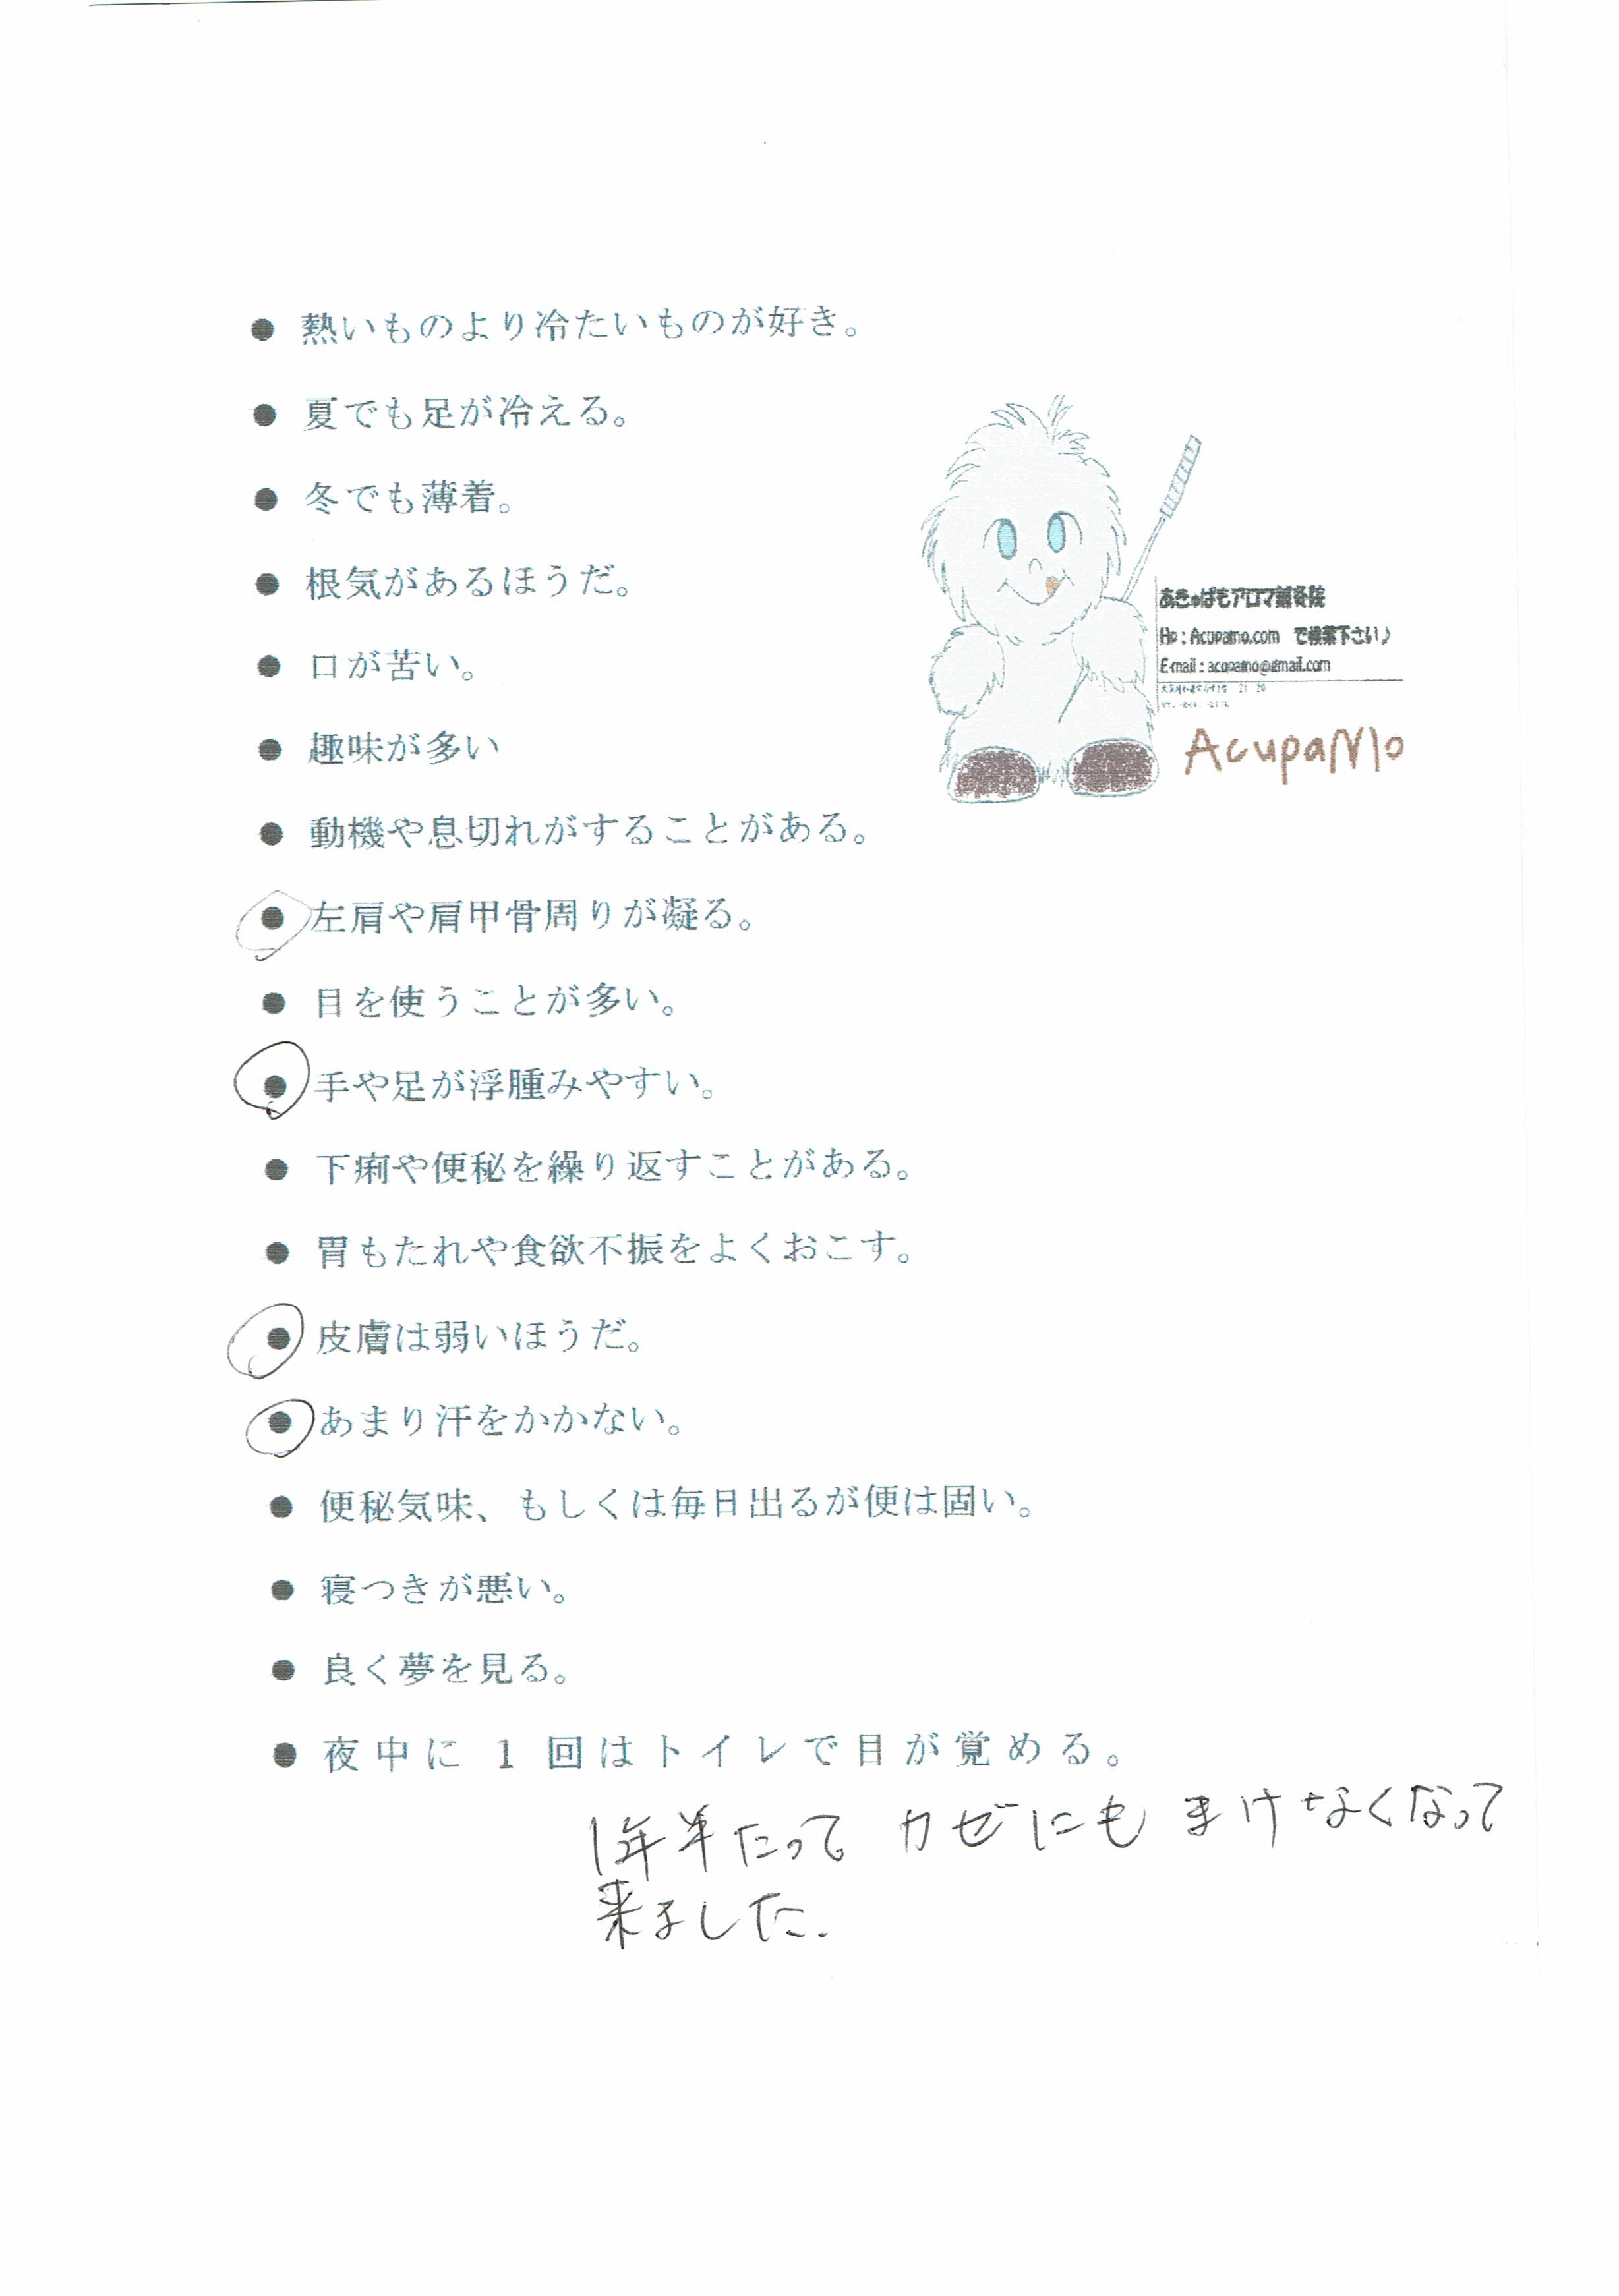 ● 熱いものより冷たいものが好き。
● 夏でも足が冷える。
● 冬でも薄着。
● 根気があるほうだ。
あきゅぱもアロマ鍼灸院
Hp : Acupamo.com で検索下さい♪
● 口が苦い。
E-mail : acupamo@gmail.com
● 趣味が多い
AcupaMo
● 動機や息切れがすることがある。
● 左肩や肩甲骨周りが凝る。
● 目を使うことが多い。
● 手や足が浮腫みやすい。
● 下痢や便秘を繰り返すことがある。
● 胃もたれや食欲不振をよくおこす。
● 皮膚は弱いほうだ。
● あまり汗をかかない。
● 便秘気味、もしくは毎日出るが便は固い。
● 寝つきが悪い。
● 良く夢を見る。
● 夜中に 1 回はトイレで目が覚める。
1年半たって カゼにも まけなくなって
来ました.